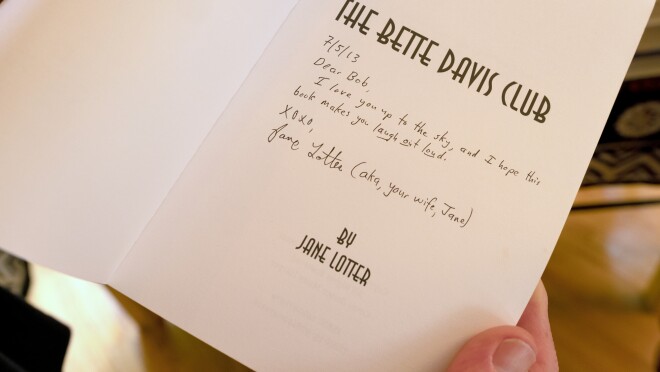 THE BETTE DAVIS CLUB
7/5/13
Dear Bob,
I love you up to the sky, and I hope this
book makes you laugh out loud.
XOXO,
Jane Lotter (aka, your wife, Jane)
BY
JANE LOTTER